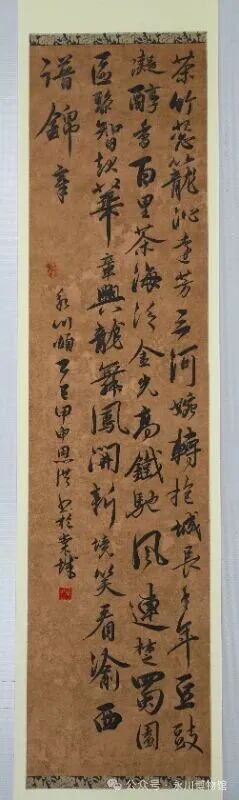 茶竹葱籠沁遠芳三河婉轉抱城長千年豆豉
凝醇香百里茶海泛金光高鐵馳風連楚蜀園
區聚智起華章興龍舞鳳開新境笑看渝西
譜錦章
永川頌 乙巳甲申恩洪書於棠城
公众号·永川博物馆